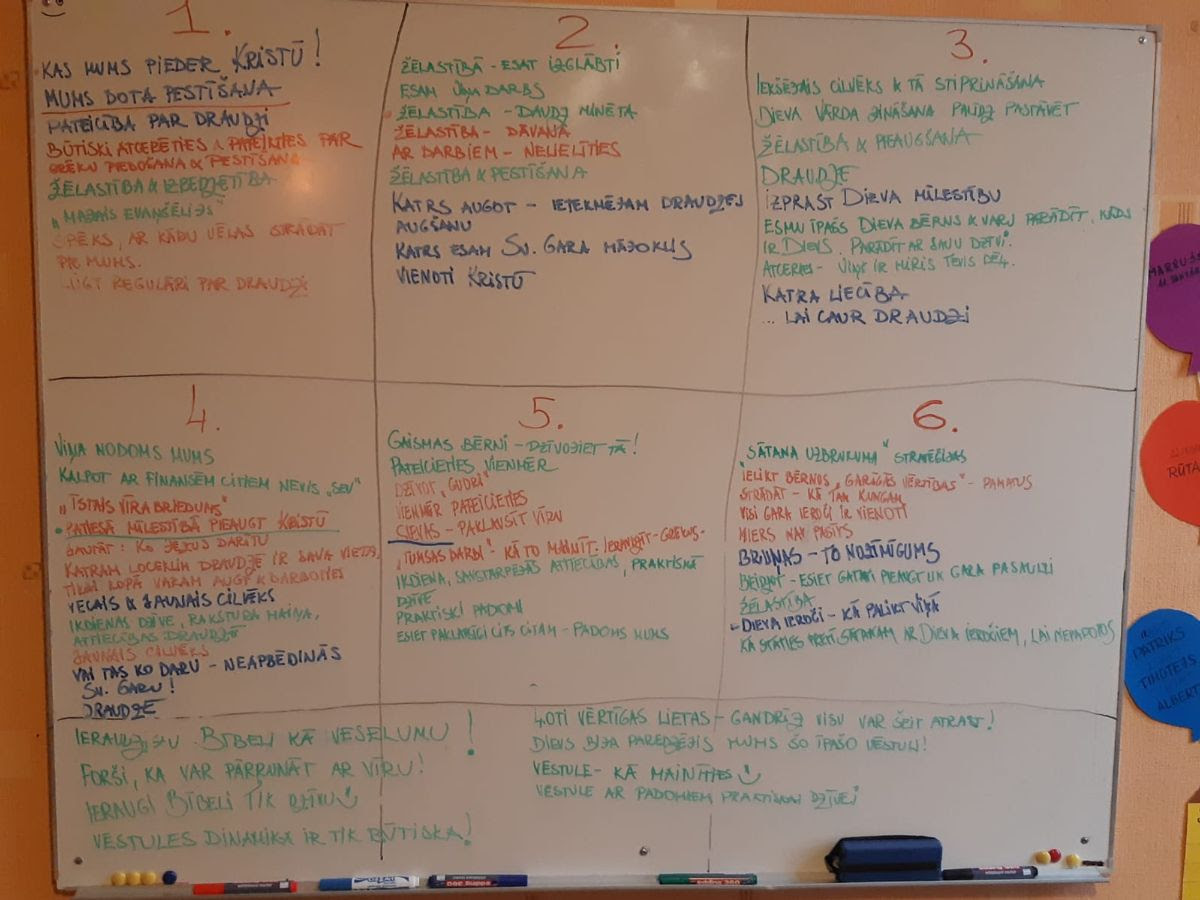 1.
KAS MUMS PIEDER KRISTŪ!
MUMS DOTA PESTĪŠANA
PATEICĪBA PAR DRAUDZI
BŪTISKI ATCERĒTIES & PATEIKTIES PAR
GRĒKU PIEDOŠANA & PESTĪŠANA
ŽĒLASTĪBA & IZREDZĒTĪBA
„MAZAIS EVAŅĢĒLIJS"
SPĒKS, AR KĀDU VĒLAS STRĀDĀT
PIE MUMS.
LŪGT REGULĀRI PAR DRAUDZI
2.
ŽĒLASTĪBĀ - ESAT IZGLĀBTI
ESAM VIŅA DARBS
ŽĒLASTĪBA - DAUDZ MINĒTA
ŽĒLASTĪBA - DĀVANA
AR DARBIEM - NELIELĪTIES
ŽĒLASTĪBA & PESTĪŠANA
KATRS AUGOT - IETEKMĒJAM DRAUDZES
AUGŠANU
KATRS ESAM SV. GARA MĀJOKLIS
VIENOTI KRISTŪ
3.
IEKŠĒJAIS CILVĒKS & TĀ STIPRINĀŠANA
DIEVA VĀRDA ZINĀŠANA PALĪDZ PASTĀVĒT
ŽĒLASTĪBA & PIEAUGŠANA
DRAUDZE
IZPRAST DIEVA MĪLESTĪBU
ESMU ĪPAŠS DIEVA BĒRNS & VARU PARĀDĪT, KĀDS
IR DIEVS. PARĀDĪT AR SAVU DZĪVI.
ATCERIES - VIŅŠ IR MIRIS TEVIS DĒĻ.
KATRA LIECĪBA
... LAI CAUR DRAUDZI
4.
VIŅA NODOMS MUMS
KALPOT AR FINANSĒM CITIEM NEVIS „SEV"
„ĪSTAIS VĪRA BRIEDUMS"
PATIESĀ MĪLESTĪBĀ PIEAUGT KRISTŪ
JAUTĀT: KO JĒZUS DARĪTU
KATRAM LOCEKLIM DRAUDZĒ IR SAVA VIETA,
TIKAI KOPĀ VARAM AUGT & DARBOTIES
VECAIS & JAUNAIS CILVĒKS
IKDIENAS DZĪVE, RAKSTURA MAIŅA,
ATTIECĪBAS DRAUDZĒ
JAUNAIS CILVĒKS
VAI TAS KO DARU - NEAPBĒDINĀS
SV. GARU!
DRAUDZE
5.
GAISMAS BĒRNI - DZĪVOJIET TĀ!
PATEICIETIES VIENMĒR
DZĪVOT „GUDRI"
VIENMĒR PATEICIETIES
SIEVAS - PAKLAUSĪT VĪRU
„TUMSAS DARBI" - KĀ TO MAINĪT. IERAUDZĪT - GRĒKUS -
IKDIENA, SAVSTARPĒJĀS ATTIECĪBAS, PRAKTISKĀ
DZĪVE
PRAKTISKI PADOMI
ESIET PAKLAUSĪGI CITS CITAM - PADOMS MUMS
6.
"SĀTANA UZBRUKUMA" STRATĒĢIJAS
IELIKT BĒRNOS „GARĪGĀS VĒRTĪBAS" - PAMATUS
STRĀDĀT - KĀ TAM KUNGAM
VISI GARA IEROČI IR VIENOTI
MIERS NAV PASĪVS
BRUŅAS - TO NOZĪMĪGUMS
BEIDZOT - ESIET GATAVI PIEAUGT UN GARA PASAULĒ
ŽĒLASTĪBA
DIEVA IEROČI - KĀ PALIKT VIŅĀ
KĀ STĀTIES PRETĪ SĀTANAM AR DIEVA IEROČIEM, LAI NEPADOTOS
IERAUDZĪJU BĪBELI KĀ VESELUMU!
FORŠI, KA VAR PĀRRUNĀT AR VĪRU!
IERAUGI BĪBELI TIK DZĪVU
VĒSTULES DINAMIKA IR TIK BŪTISKA!
ĻOTI VĒRTĪGAS LIETAS - GANDRĪZ VISU VAR ŠEIT ATRAST!
DIEVS BIJA PAREDZĒJIS MUMS ŠO ĪPAŠO VĒSTULI!
VĒSTULE - KĀ MAINĪTIES
VĒSTULE AR PADOMIEM PRAKTISKAI DZĪVEI
RŪTA
PATRIKS
TIMOTEJS
ALBERTS